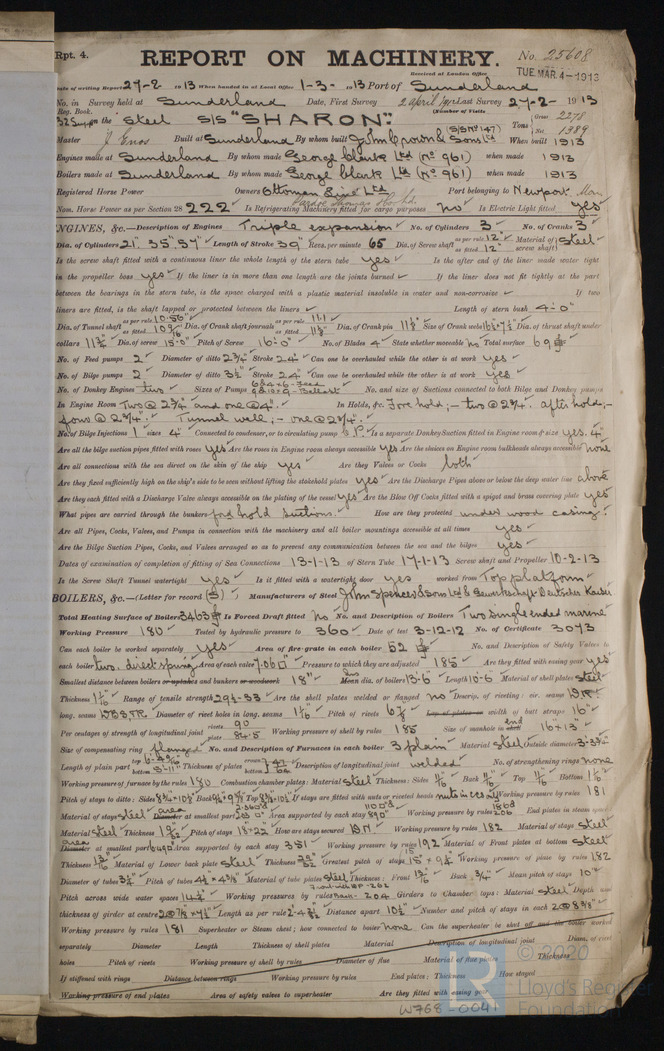 Rpt. 4.
REPORT ON MACHINERY.
No. 25608
Received at London Office TUE. MAR. 4 - 1913
Date of writing Report 27-2- 1913 When handed in at Local Office 1-3- 1913 Port of Sunderland
No. in Survey held at Sunderland Date, First Survey 2 April Last Survey 27-2- 1913
Reg. Book. (Number of Visits
on the Steel S/S "SHARON" Tons Gross 2278 Net 1389
Master J. Enos Built at Sunderland By whom built John Crown & Sons Ld (S/S No 147) When built 1913
Engines made at Sunderland By whom made George Clark Ltd (No 961) when made 1913
Boilers made at Sunderland By whom made George Clark Ltd (No 961) when made 1913
Registered Horse Power Owners Ottoman Line Ltd Port belonging to Newport Mon
Nom. Horse Power as per Section 28 222 Is Refrigerating Machinery fitted for cargo purposes no Is Electric Light fitted yes
ENGINES, &c.—Description of Engines Triple expansion No. of Cylinders 3 No. of Cranks 3
Dia. of Cylinders 21" 35" 57" Length of Stroke 39" Revs. per minute 65 Dia. of Screw shaft as per rule 12" as fitted 12" Material of screw shaft Steel
Is the screw shaft fitted with a continuous liner the whole length of the stern tube yes Is the after end of the liner made water tight
in the propeller boss yes If the liner is in more than one length are the joints burned If the liner does not fit tightly at the part
between the bearings in the stern tube, is the space charged with a plastic material insoluble in water and non-corrosive If two
liners are fitted, is the shaft lapped or protected between the liners Length of stern bush 4-0"
Dia. of Tunnel shaft as per rule 10.56" as fitted Dia. of Crank shaft journals as per rule 11.1" as fitted Dia. of Crank pin Size of Crank webs Dia. of thrust shaft under
collars Dia. of screw 15-0" Pitch of Screw 16-0" No. of Blades 4 State whether moveable no Total surface 69
No. of Feed pumps 2 Diameter of ditto 2¾" Stroke 24" Can one be overhauled while the other is at work yes
No. of Bilge pumps 2 Diameter of ditto 3½" Stroke 24" Can one be overhauled while the other is at work yes
No. of Donkey Engines two Sizes of Pumps No. and size of Suctions connected to both Bilge and Donkey pumps
In Engine Room Two @ 2¾" and one @ 4". In Holds, &c. Fore hold;- two @ 2¾". after hold;-
four @ 2¾". Tunnel well;- one @ 2¾".
No. of Bilge Injections 1 sizes 4" Connected to condenser, or to circulating pump C.P. Is a separate Donkey Suction fitted in Engine room & size yes. 4"
Are all the bilge suction pipes fitted with roses yes Are the roses in Engine room always accessible yes Are the sluices on Engine room bulkheads always accessible none
Are all connections with the sea direct on the skin of the ship yes Are they Valves or Cocks both
Are they fixed sufficiently high on the ship's side to be seen without lifting the stokehold plates yes Are the Discharge Pipes above or below the deep water line above
Are they each fitted with a Discharge Valve always accessible on the plating of the vessel yes Are the Blow Off Cocks fitted with a spigot and brass covering plate yes
What pipes are carried through the bunkers for'd hold suctions. How are they protected under wood casing.
Are all Pipes, Cocks, Valves, and Pumps in connection with the machinery and all boiler mountings accessible at all times yes
Are the Bilge Suction Pipes, Cocks, and Valves arranged so as to prevent any communication between the sea and the bilges yes
Dates of examination of completion of fitting of Sea Connections 13-1-13 of Stern Tube 17-1-13 Screw shaft and Propeller 10-2-13
Is the Screw Shaft Tunnel watertight yes Is it fitted with a watertight door yes worked from Top platform
BOILERS, &c.—(Letter for record (S) Manufacturers of Steel John Spencer & Sons Ld & Gewerkschaft Deutscher Kaiser
Total Heating Surface of Boilers 3463 Is Forced Draft fitted no No. and Description of Boilers Two single ended marine
Working Pressure 180 Tested by hydraulic pressure to 360 Date of test 3-12-12 No. of Certificate 3073
Can each boiler be worked separately yes Area of fire-grate in each boiler 52 No. and Description of Safety Valves to
each boiler two. direct spring Area of each valve 7.06 Pressure to which they are adjusted 185 Are they fitted with easing gear yes
Smallest distance between boilers or uptakes and bunkers or woodwork 18" Mean dia. of boilers 13-6" Length 10-6" Material of shell plates Steel
Thickness Range of tensile strength 29½-33 Are the shell plates welded or flanged no Descrip. of riveting: cir. seams D.R.
long. seams Diameter of rivet holes in long. seams Pitch of rivets Lap of plates or width of butt straps 16"
Per centages of strength of longitudinal joint rivets 90 plate 84.5 Working pressure of shell by rules 185 Size of manhole in end 16" x 13"
Size of compensating ring flanged No. and Description of Furnaces in each boiler 3 plain Material Steel Outside diameter
Length of plain part top bottom Thickness of plates crown bottom Description of longitudinal joint welded No. of strengthening rings none
Working pressure of furnace by the rules 180 Combustion chamber plates: Material Steel Thickness: Sides Back Top Bottom
Pitch of stays to ditto: Sides Back Top If stays are fitted with nuts or riveted heads nuts in CC Working pressure by rules 181
Material of stays Steel area Diameter at smallest part Area supported by each stay Working pressure by rules End plates in steam space
Material Steel Thickness Pitch of stays 18-22 How are stays secured D.N. Working pressure by rules 182 Material of stays Steel
area Diameter at smallest part Area supported by each stay 381 Working pressure by rules 192 Material of Front plates at bottom Steel
Thickness Material of Lower back plate Steel Thickness Greatest pitch of stays Working pressure of plate by rules 182
Diameter of tubes 3¼" Pitch of tubes Material of tube plates Steel Thickness: Front Back ¾" Mean pitch of stays 10"
Pitch across wide water spaces Working pressures by rules 204 Girders to Chamber tops: Material Steel Depth and
thickness of girder at centre Length as per rule Distance apart 10½" Number and pitch of stays in each
Working pressure by rules 181 Superheater or Steam chest; how connected to boiler none Can the superheater be shut off and the boiler worked
separately Diameter Length Thickness of shell plates Material Description of longitudinal joint Diam. of rivet
holes Pitch of rivets Working pressure of shell by rules Diameter of flue Material of flue plates Thickness
If stiffened with rings Distance between rings Working pressure by rules End plates: Thickness How stayed
Working pressure of end plates Area of safety valves to superheater Are they fitted with easing gear
© 2020
Lloyd's Register
Foundation
W768-0041